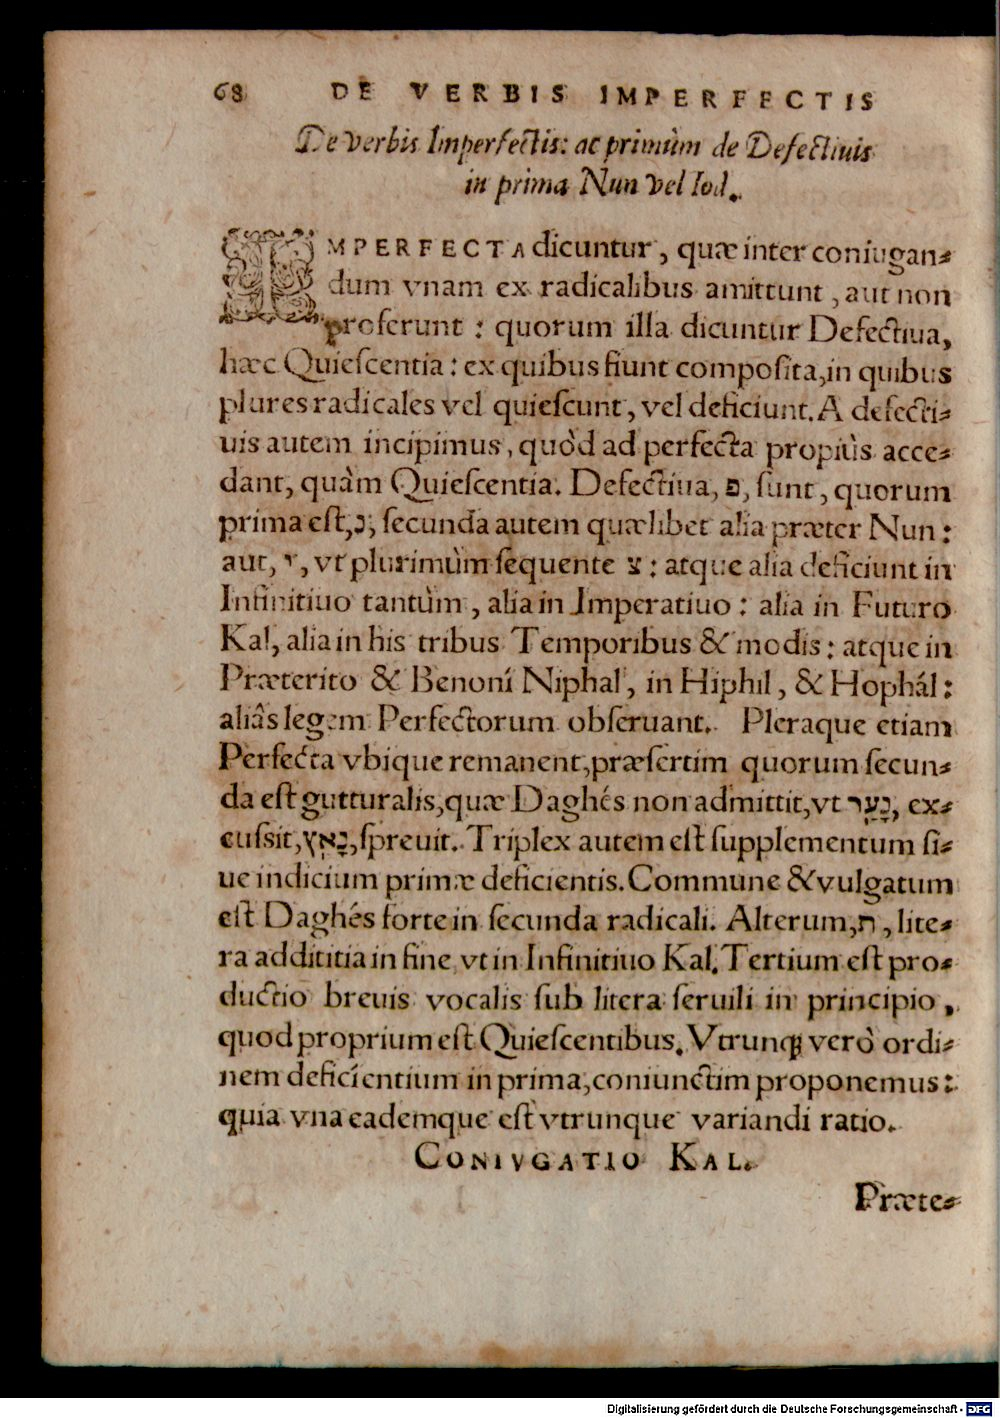 68 DE VERBIS IMPERFECTIS
De verbis Imperfectis: ac primùm de Defectiuis
in prima Nun vel Iod.
IMPERFECTA dicuntur, quæ inter coniugan-
dum vnam ex radicalibus amittunt, aut non
proferunt: quorum illa dicuntur Defectiua,
hæc Quieſcentia: ex quibus fiunt compoſita, in quibus
plures radicales vel quieſcunt, vel deficiunt. A defecti-
uis autem incipimus, quòd ad perfecta propiùs acce-
dant, quàm Quieſcentia. Defectiua, פ, ſunt, quorum
prima eſt, נ, ſecunda autem quælibet alia præter Nun:
aut, י, vt plurimùm ſequente צ: atque alia deficiunt in
Infinitiuo tantùm, alia in Imperatiuo: alia in Futuro
Kal, alia in his tribus Temporibus & modis: atque in
Præterito & Benoní Niphal, in Hiphil, & Hophál:
aliâs legem Perfectorum obſeruant. Pleraque etiam
Perfecta vbique remanent, præſertim quorum ſecun-
da eſt gutturalis, quæ Daghés non admittit, vt נָעַר, ex-
cuſsit, נָאַץ, ſpreuit. Triplex autem eſt ſupplementum ſi-
ue indicium primæ deficientis. Commune & vulgatum
eſt Daghés forte in ſecunda radicali. Alterum, ת, lite-
ra addititia in fine, vt in Infinitiuo Kal. Tertium eſt pro-
ductio breuis vocalis ſub litera ſeruili in principio,
quod proprium eſt Quieſcentibus. Vtrunq; verò ordi-
nem deficíentium in prima, coniunctim proponemus:
quia vna eademque eſt vtrunque variandi ratio.
CONIVGATIO KAL.
Præte-
Digitalisierung gefördert durch die Deutsche Forschungsgemeinschaft - DFG